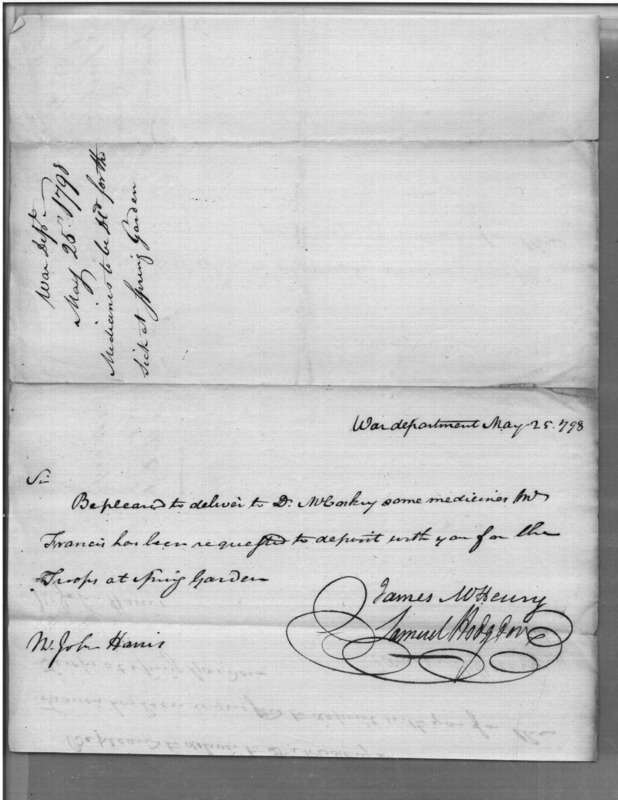 War Dept
May 25. 1798
Medicines to be dd for the
Sick at Spring Garden
War department May 25. 1798
Sir
Be pleased to deliver to Dr. McCoskry some medicines Mr
Francis has been requested to deposit with you for the
Troops at Spring Garden
James McHenry
Samuel Hodgdon
Mr. John Harris